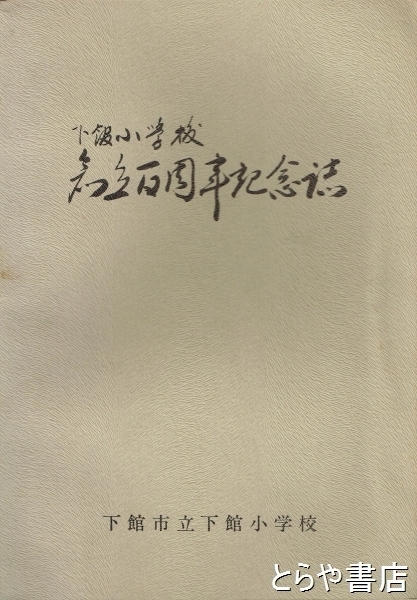 下館小学校
創立百周年記念誌
下館市立下館小学校
とらや書店